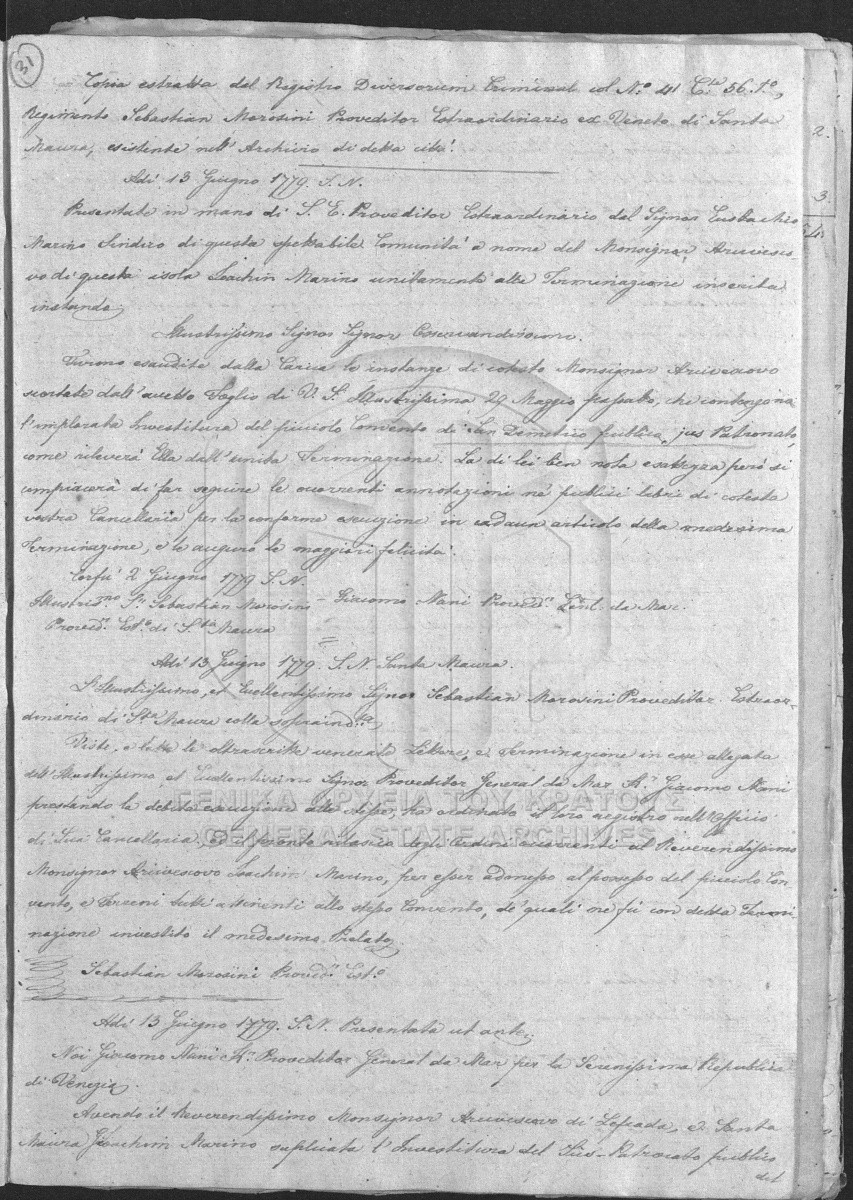 31
Copia estratta dal Registro Diversorum Criminal col N.o 41 C.te 56. t.o,
Regimento Sebastian Morosini Proveditor Estraordinario ex Veneto di Santa
Maura, esistente nell' Archivio di detta città.
Adì 13 Giugno 1779. S. N.
Presentate in mano di S. E. Proveditor Estraordinario dal Signor Eustachio
Marino Sindico di questa spettabile Comunità a nome del Monsignor Arcivesco
vo di questa isola Joachin Marino unitamente alla Terminazione inserita
instando
Illustrissimo Signor Signor Osservandissimo.
Furono esaudite dalla Carica le instanze di cotesto Monsignor Arcivescovo
scortate dall' Foglio di V. S. Illustrissima 29 Maggio passato, che contengono
l'implorata Investitura del picciolo Convento di San Demetrio publico jus Patronato,
come rileverà Ella dall' unita Terminazione. La di lei ben nota esatezza però si
compiacerà di far seguire le ocorrenti annotazioni ne' publici libri di cotesta
vostra Cancellaria per la conforme esecuzione in cadaun articolo della medesima
Terminazione, e le auguro le maggiori felicità.
Corfù 2 Giugno 1779 S. N.
Illustris.mo S.r Sebastian Morosini = Giacomo Nani Proved.r Genl. da Mar.
Proved.r Est.o di S.ta Maura
=
Adì 13 Giugno 1779. S. N. Santa Maura.
L'Illustrissimo, et Eccellentissimo Signor Sebastian Morosini Proveditor Estraor-
dinario di S.ta Maura colla sopraind.za
Viste, e lette le oltrascritte venerate Lettere, e Terminazione in esse allegata
dell' Illustrissimo, et Eccellentissimo Signor Proveditor General da Mar K.r Giacomo Nani
prestando la debita esecuzione alle stesse, ha ordinato il loro registro nell' Officio
di Sua Cancellaria, ed il pronto rilascio degli ordini ocorrenti al Reverendissimo
Monsignor Arcivescovo Joachin Marino, per esser admesso al possesso del picciolo Con-
vento, e Terreni tutti attinenti allo stesso Convento, de' quali ne fù con detta Termi
nazione investito il medesimo Prelato
Sebastian Morosini Proved.r Est.o
Adì 13 Giugno 1779. S. N. Presentata ut ante.
Noi Giacomo Nani K.r Proveditor General da Mar per la Serenissima Republica
di Venezia.
Avendo il Reverendissimo Monsignor Arcivescovo di Lefcada, e Santa
Maura Gioachim Marino suplicata l'Investitura del Jus-Patronato publico
del
2.
3.
4.
ΓΕΝΙΚΑ ΑΡΧΕΙΑ ΤΟΥ ΚΡΑΤΟΥΣ
GENERAL STATE ARCHIVES